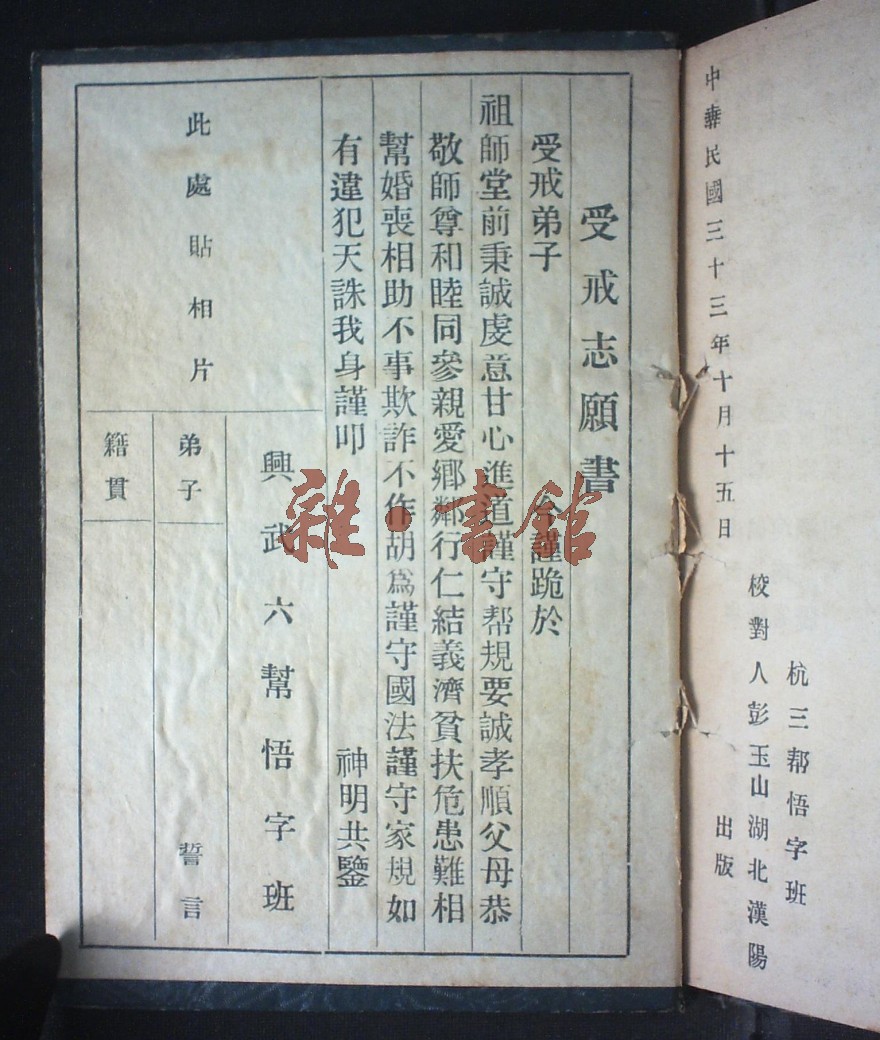 中華民國三十三年十月十五日 出版
杭三幇悟字班
校對人彭玉山湖北漢陽
受戒志願書
受戒弟子 今謹跪於
祖師堂前秉誠虔意甘心進道謹守幇規要誠孝順父母恭
敬師尊和睦同參親愛鄉鄰行仁結義濟貧扶危患難相
幫婚喪相助不事欺詐不作胡爲謹守國法謹守家規如
有違犯天誅我身謹叩 神明共鑒
此處貼相片
興武六幫悟字班
弟子 誓言
籍貫
雜·書館